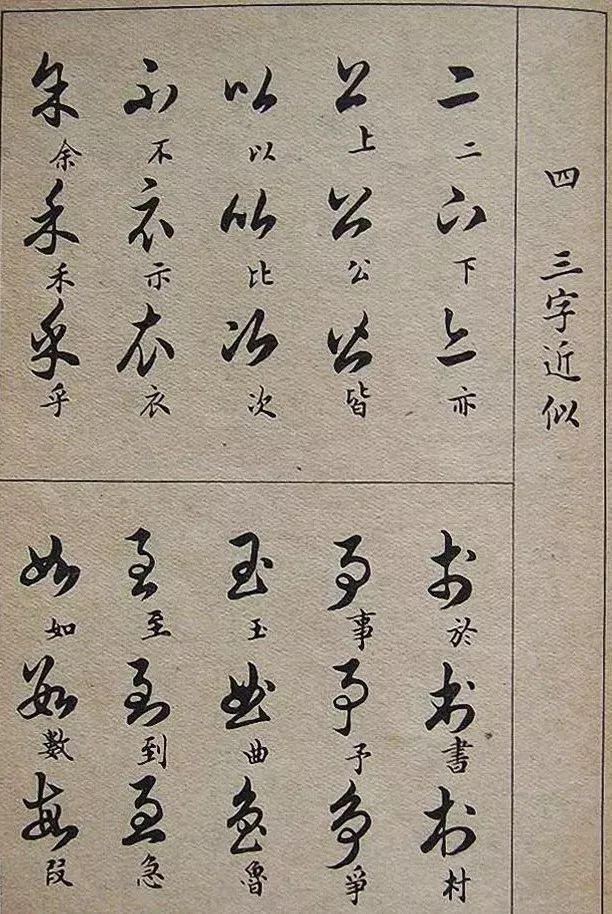 四 三字近似
二二下下亦亦
上上公公皆皆
以以比比次次
不不示示衣衣
余余禾禾乎乎
於於書書村村
事事予予爭爭
玉玉曲曲魯魯
至至到到急急
如如數數段段